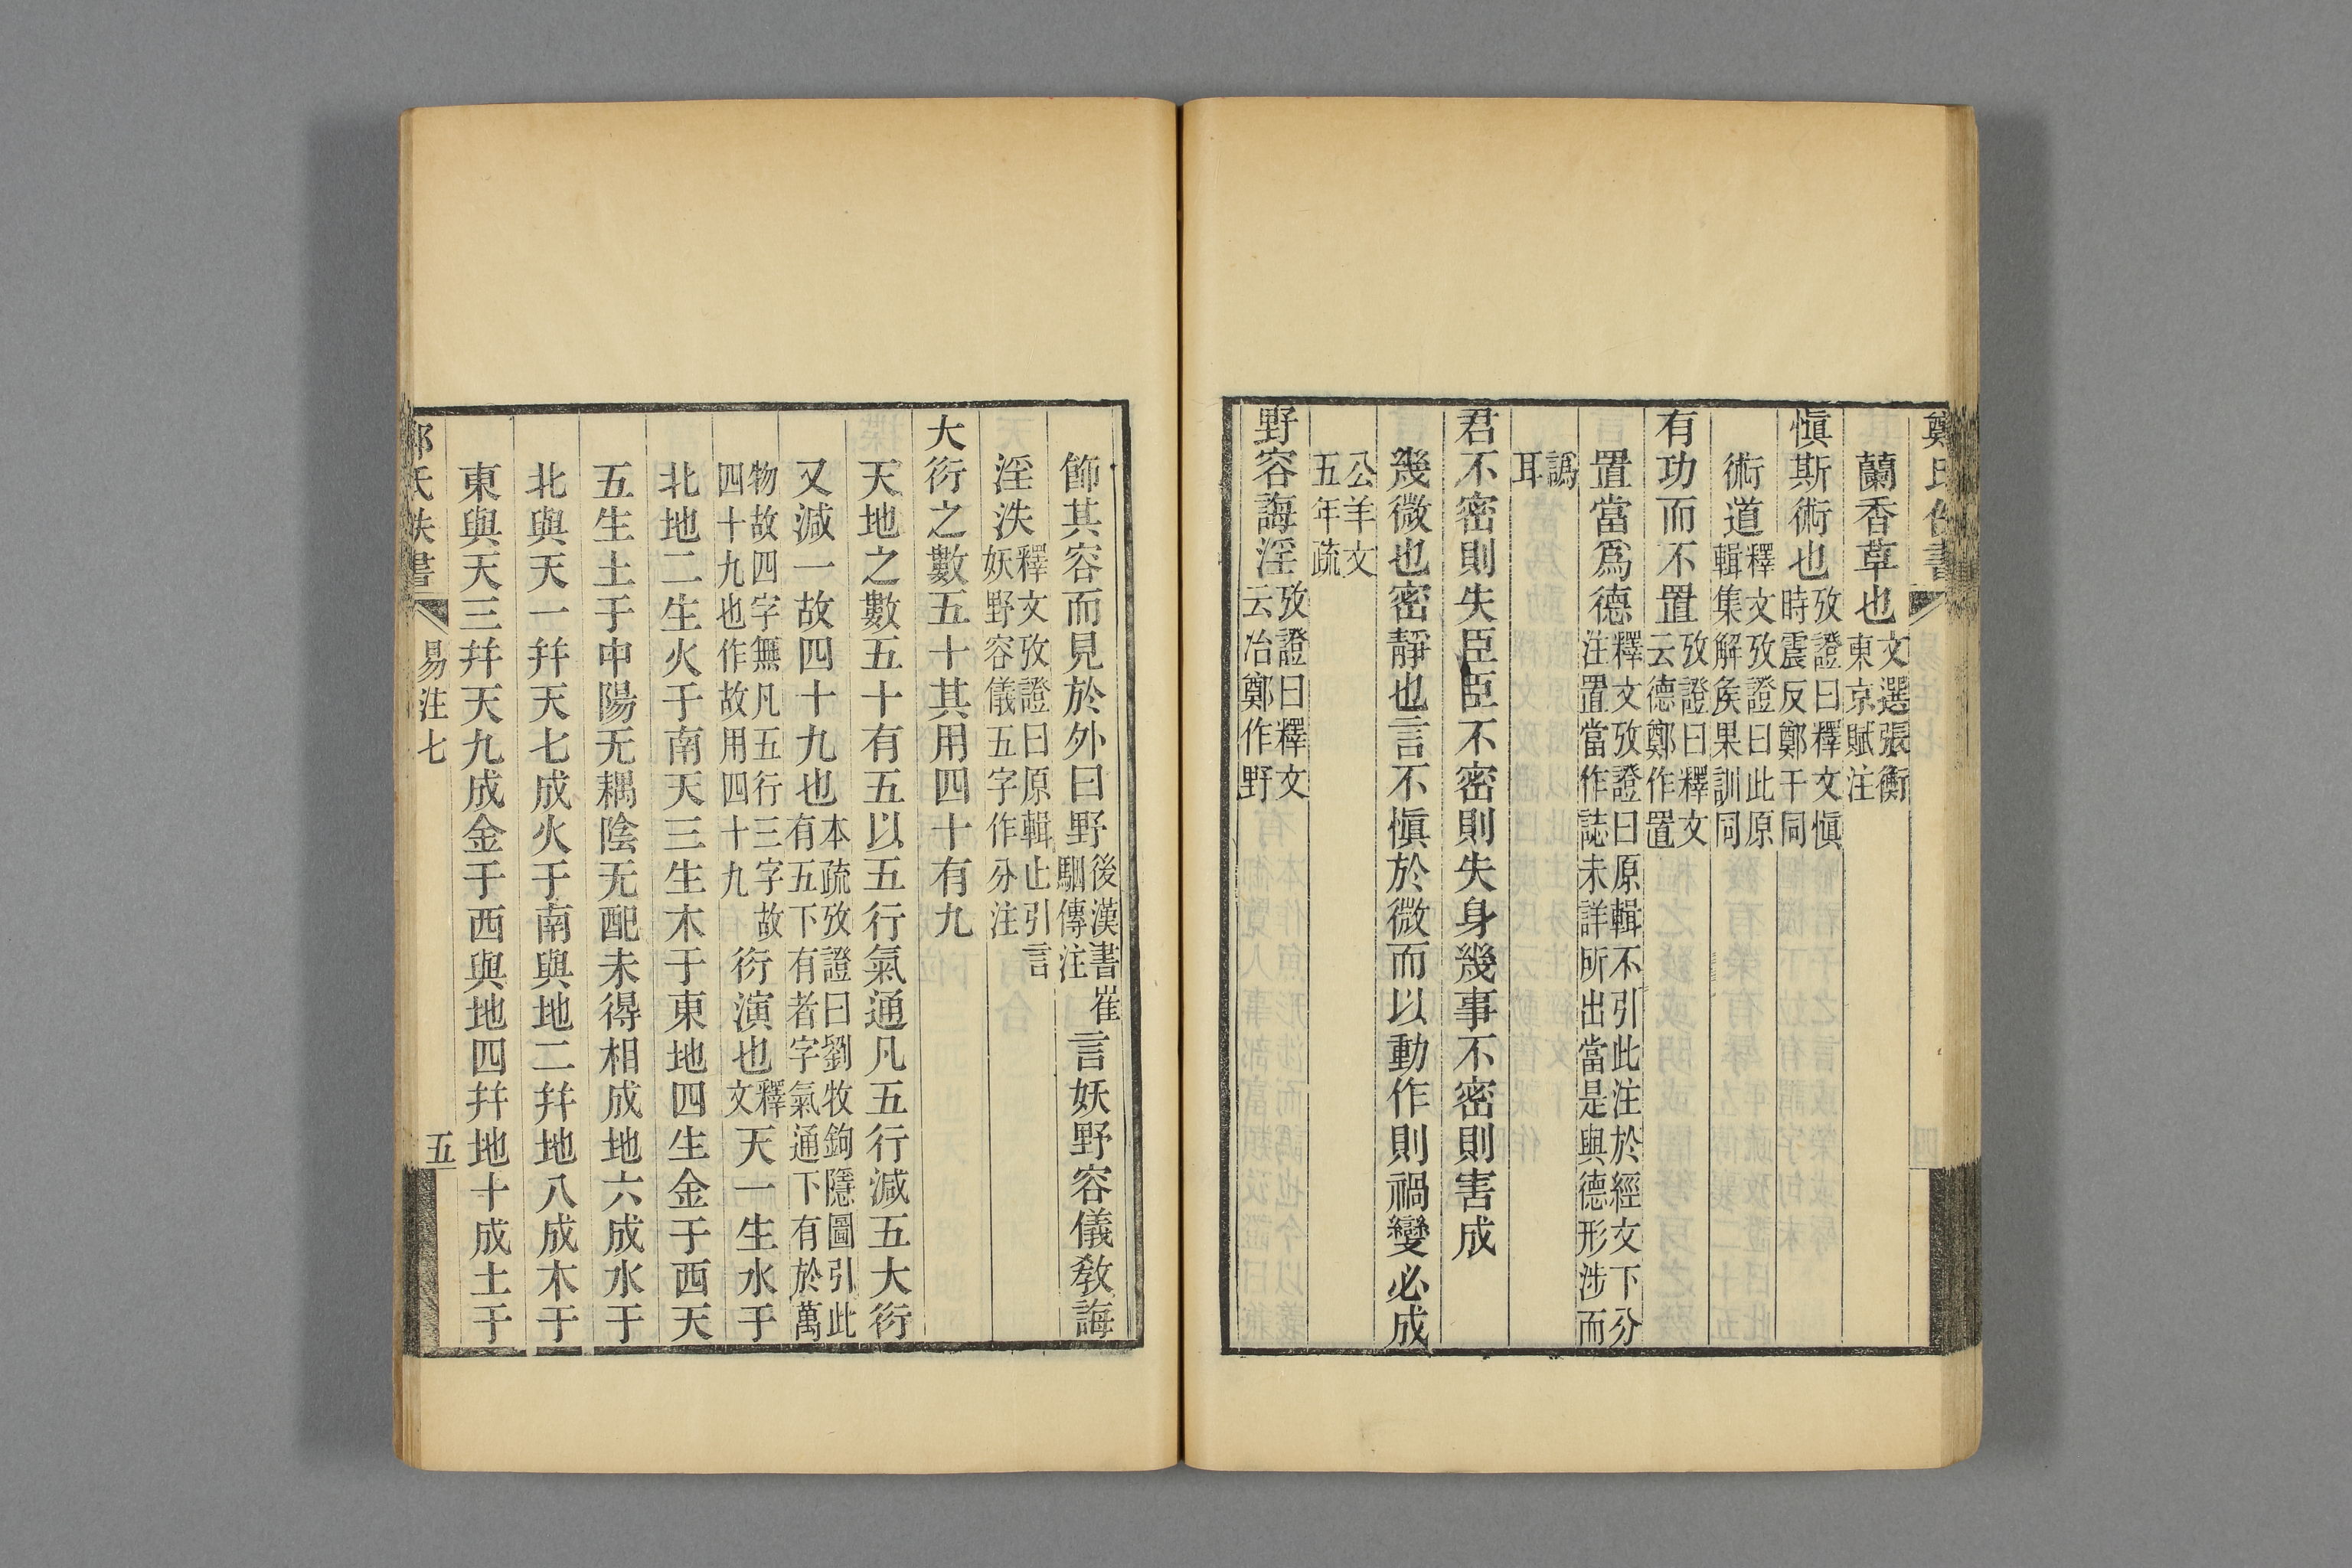 鄭氏佚書
蘭香草也文選張衡東京賦注
慎斯術也攷證曰釋文慎時震反鄭干同
術道釋文攷證曰此原輯集解矦果訓同
有功而不置攷證曰釋文云德鄭作置
置當爲德釋文攷證曰原輯不引此注於經文下分注置當作誌未詳所出當是與德形涉而
譌耳
君不密則失臣臣不密則失身幾事不密則害成
幾微也密靜也言不慎於微而以動作則禍變必成
公羊文五年疏
野容誨淫攷證曰釋文云冶鄭作野
飾其容而見於外曰野後漢書崔駰傳注言妖野容儀敎誨
淫泆釋文攷證曰原輯止引言妖野容儀五字作分注
大衍之數五十其用四十有九
天地之數五十有五以五行氣通凡五行減五大衍
又減一故四十九也本疏攷證曰劉牧鉤隱圖引此有五下有者字氣通下有於萬
物故四字無凡五行三字故四十九也作故用四十九衍演也釋文天一生水于
北地二生火于南天三生木于東地四生金于西天
五生土于中陽无耦陰无配未得相成地六成水于
北與天一并天七成火于南與地二并地八成木于
東與天三并天九成金于西與地四并地十成土于
鄭氏佚書 易注七 五